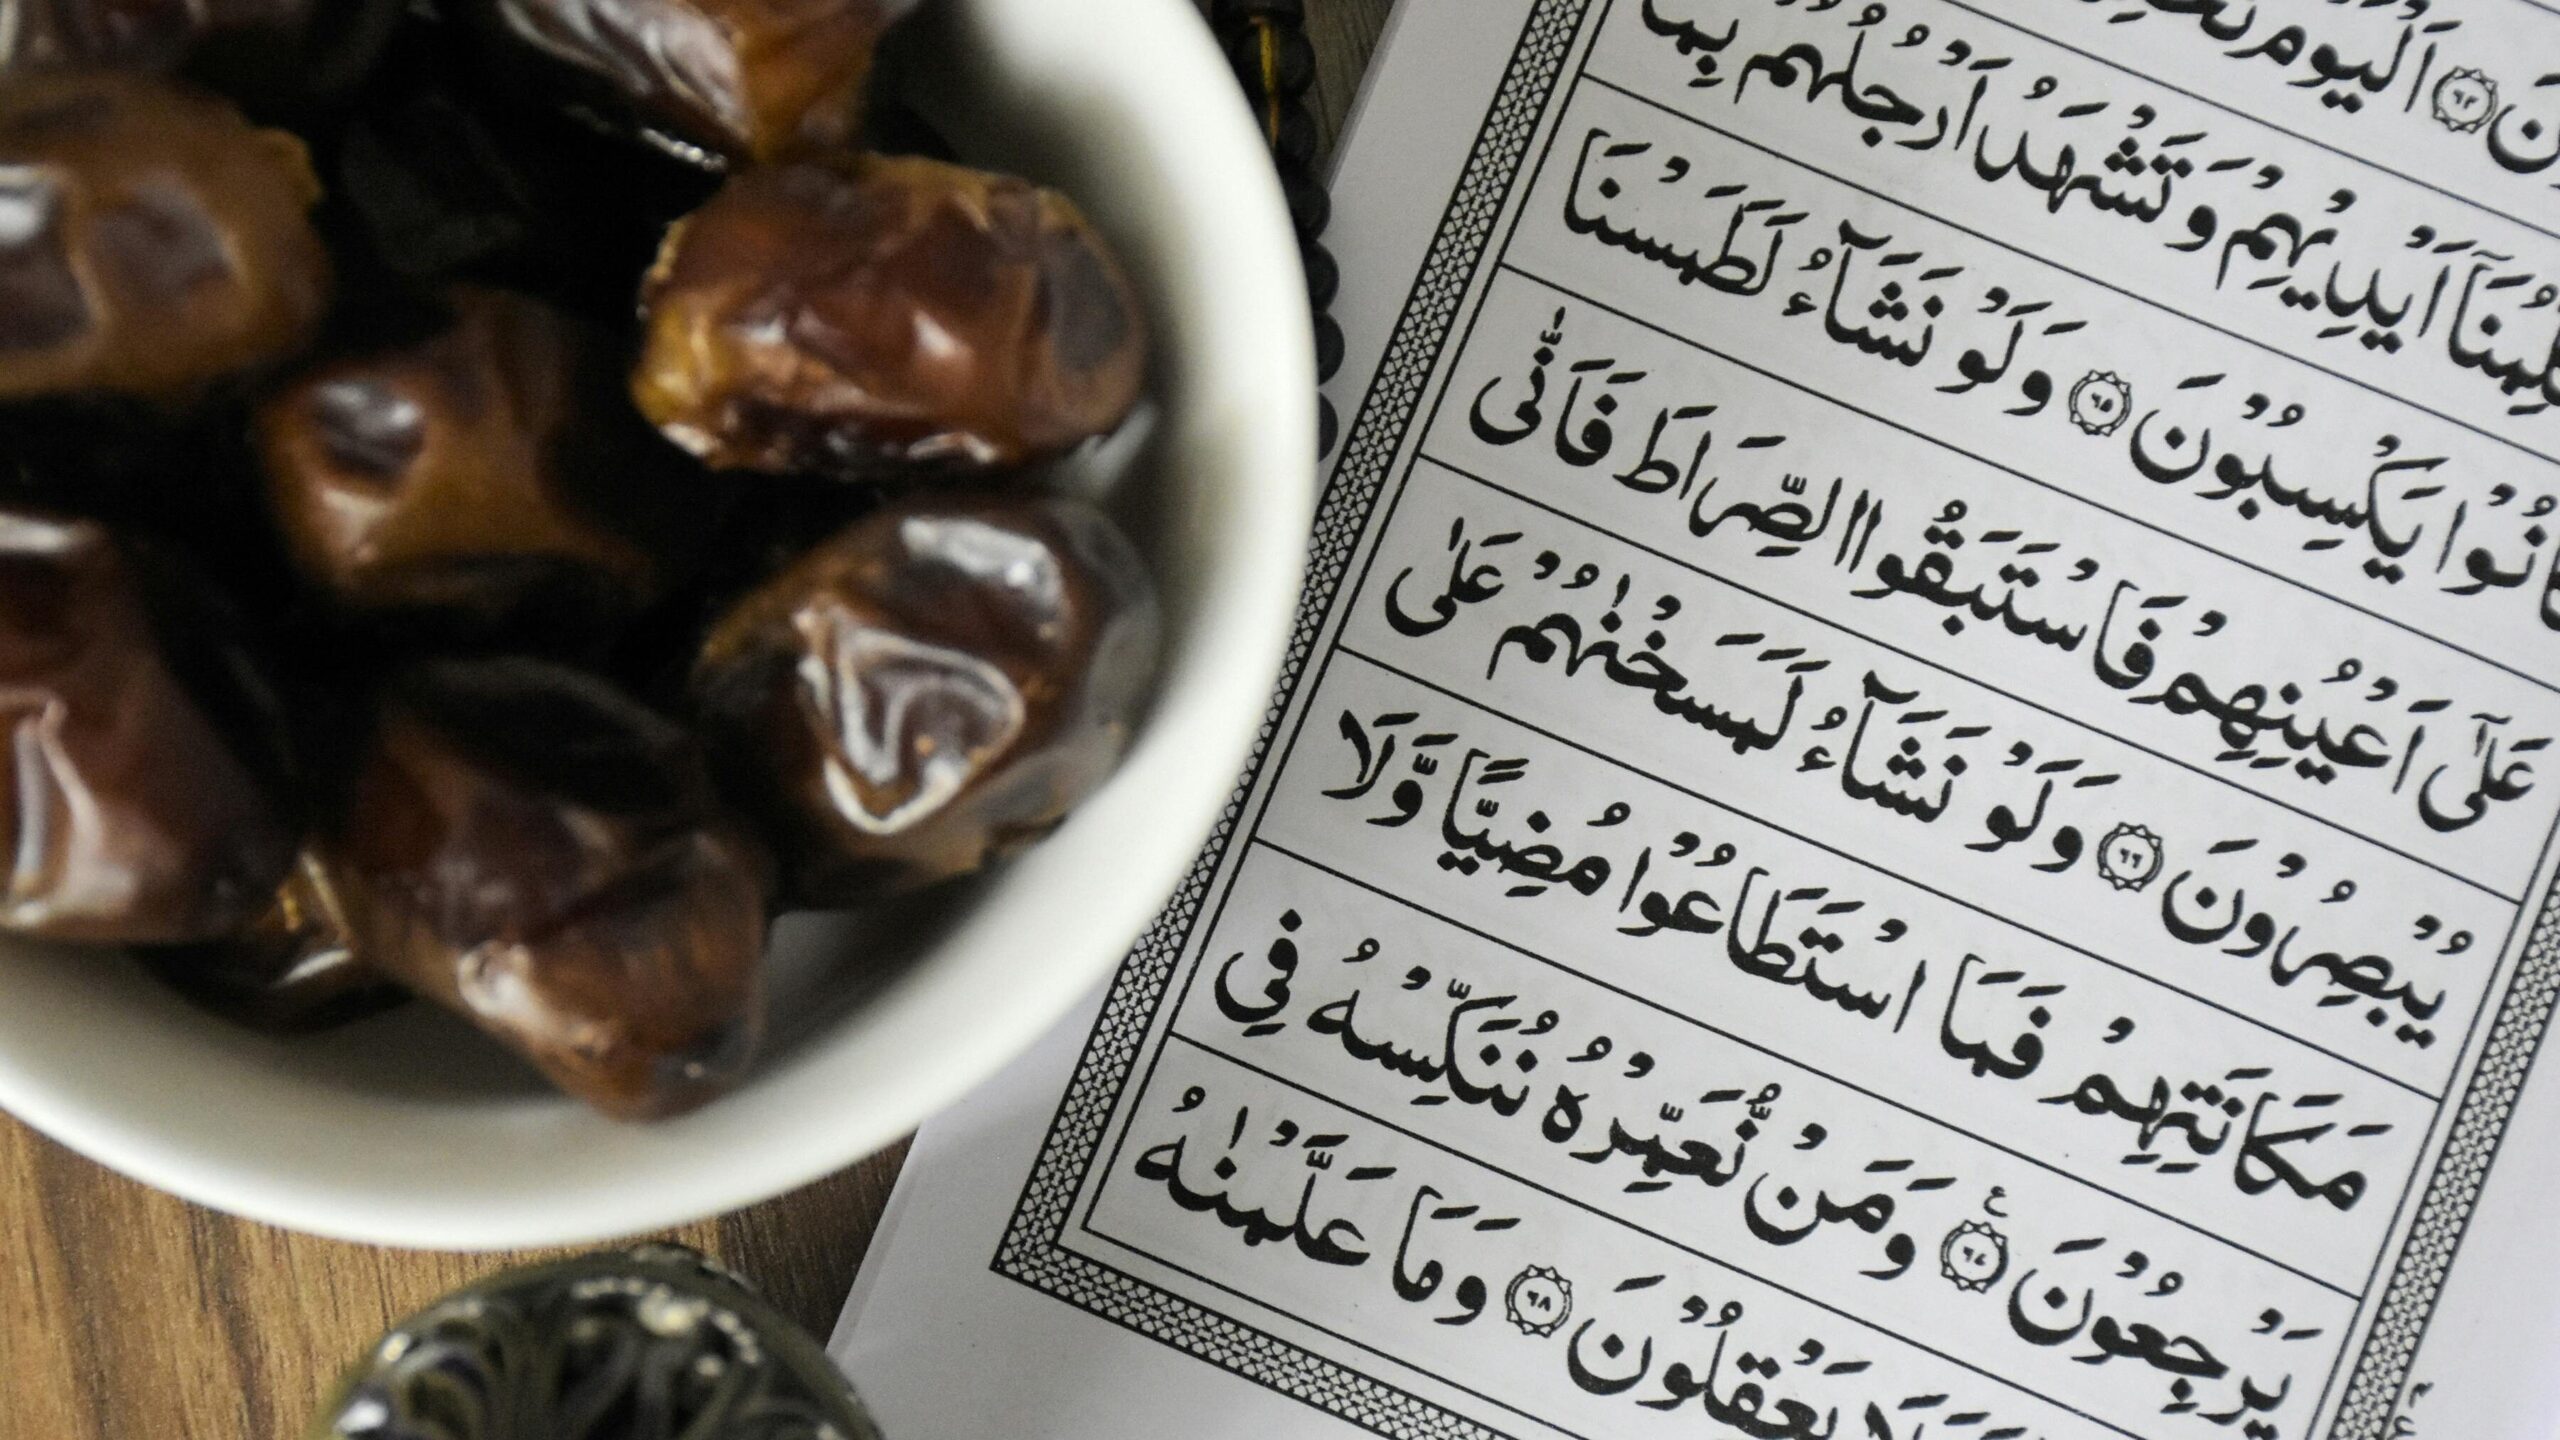 اَلْيَوْمَ
اَيْدِيْهِمْ وَتَشْهَدُ اَرْجُلُهُمْ بِمَا
كَانُوْا يَكْسِبُوْنَ ٦٥ وَلَوْ نَشَآءُ لَطَمَسْنَا
عَلٰٓى اَعْيُنِهِمْ فَاسْتَبَقُوا الصِّرَاطَ فَاَنّٰى
يُبْصِرُوْنَ ٦٦ وَلَوْ نَشَآءُ لَمَسَخْنٰهُمْ عَلٰى
مَكَانَتِهِمْ فَمَا اسْتَطَاعُوْا مُضِيًّا وَّلَا
يَرْجِعُوْنَ ٦٧ ع وَمَنْ نُّعَمِّرْهُ نُنَكِّسْهُ فِى
يَعْقِلُوْنَ ٦٨ وَمَا عَلَّمْنٰهُ